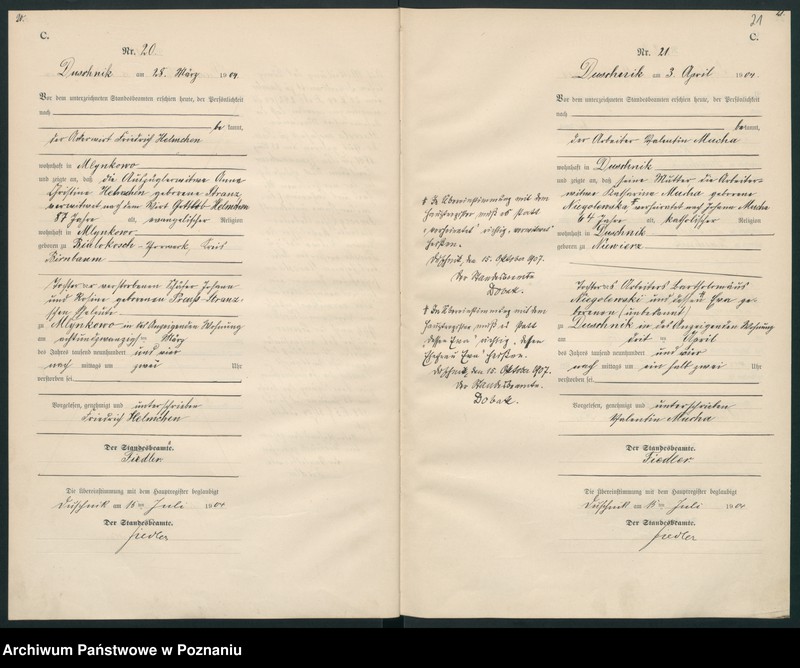 C.
Nr. 20
Duschnik am 28. März 1904
Vor dem unterzeichneten Standesbeamten erschien heute, der Persönlichkeit
nach
be kannt,
der Ackerwirt Friedrich Helmchen
wohnhaft in Mlynkowo
und zeigte an, daß die Auszüglerwitwe Anna
Christine Helmchen geborene Kranz
verwitwet nach dem Wirt Helmchen
87 Jahre alt, evangelischer Religion
wohnhaft in Mlynkowo
geboren zu Bialokosch-Vorwerk, Kreis
Birnbaum
Tochter der verstorbenen Schäfer Johann
und Rosine geborenen
schen Eheleute
zu Mlynkowo in des Anzeigenden Wohnung
am März
des Jahres tausend neunhundert und vier
nach mittags um zwei Uhr
verstorben sei
Vorgelesen, genehmigt und unterschrieben
Friedrich Helmchen
Der Standesbeamte.
Fiedler
Die Übereinstimmung mit dem Hauptregister beglaubigt
Duschnik am 15ten Juli 1904
Der Standesbeamte.
Fiedler
21
C.
Nr. 21
Duschnik am 3. April 1904
Vor dem unterzeichneten Standesbeamten erschien heute, der Persönlichkeit
nach
bekannt,
der Arbeiter Valentin Mucha
wohnhaft in Duschnik
und zeigte an, daß seine Mutter die Arbeiter-
witwe Katharina Mucha geborene
Niegolewska, verheiratet mit Johann Mucha
64 Jahre alt, katholischer Religion
wohnhaft in Duschnik
geboren zu Niewierz
Tochter des Arbeiters Bartholomäus
Niegolewski und dessen Eva ge-
borenen (unbekannt)
zu Duschnik in des Anzeigenden Wohnung
am April
des Jahres tausend neunhundert und vier
nach mittags um ein halb zwei Uhr
verstorben sei
Vorgelesen, genehmigt und unterschrieben
Valentin Mucha
Der Standesbeamte.
Fiedler
Die Übereinstimmung mit dem Hauptregister beglaubigt
Duschnik am 15ten Juli 1904
Der Standesbeamte.
Fiedler
In Übereinstimmung mit dem
Hauptregister muß es statt
„verheiratet“ richtig „verwitwet“
heißen.
Duschnik, den 15. Oktober 1907.
Der Standesbeamte
Dobak.
In Übereinstimmung mit dem
Hauptregister, muß es statt
„dessen Eva“ richtig „dessen
Ehefrau Eva“ heißen.
Duschnik, den 15. Oktober 1907.
Der Standesbeamte.
Dobak.
Archiwum Państwowe w Poznaniu